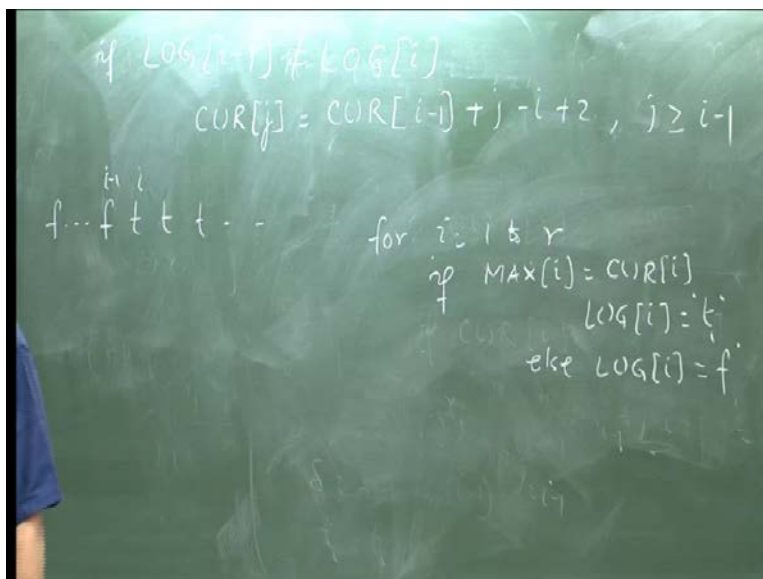 if LOG[i-1] ≠ LOG[i]
CUR[j] = CUR[i-1] + j - i + 2 , j ≥ i-1
i-1 i
f ... f t t t . . -
for i = 1 to r
if MAX[i] = CUR[i]
LOG[i] = 't'
else LOG[i] = 'f'